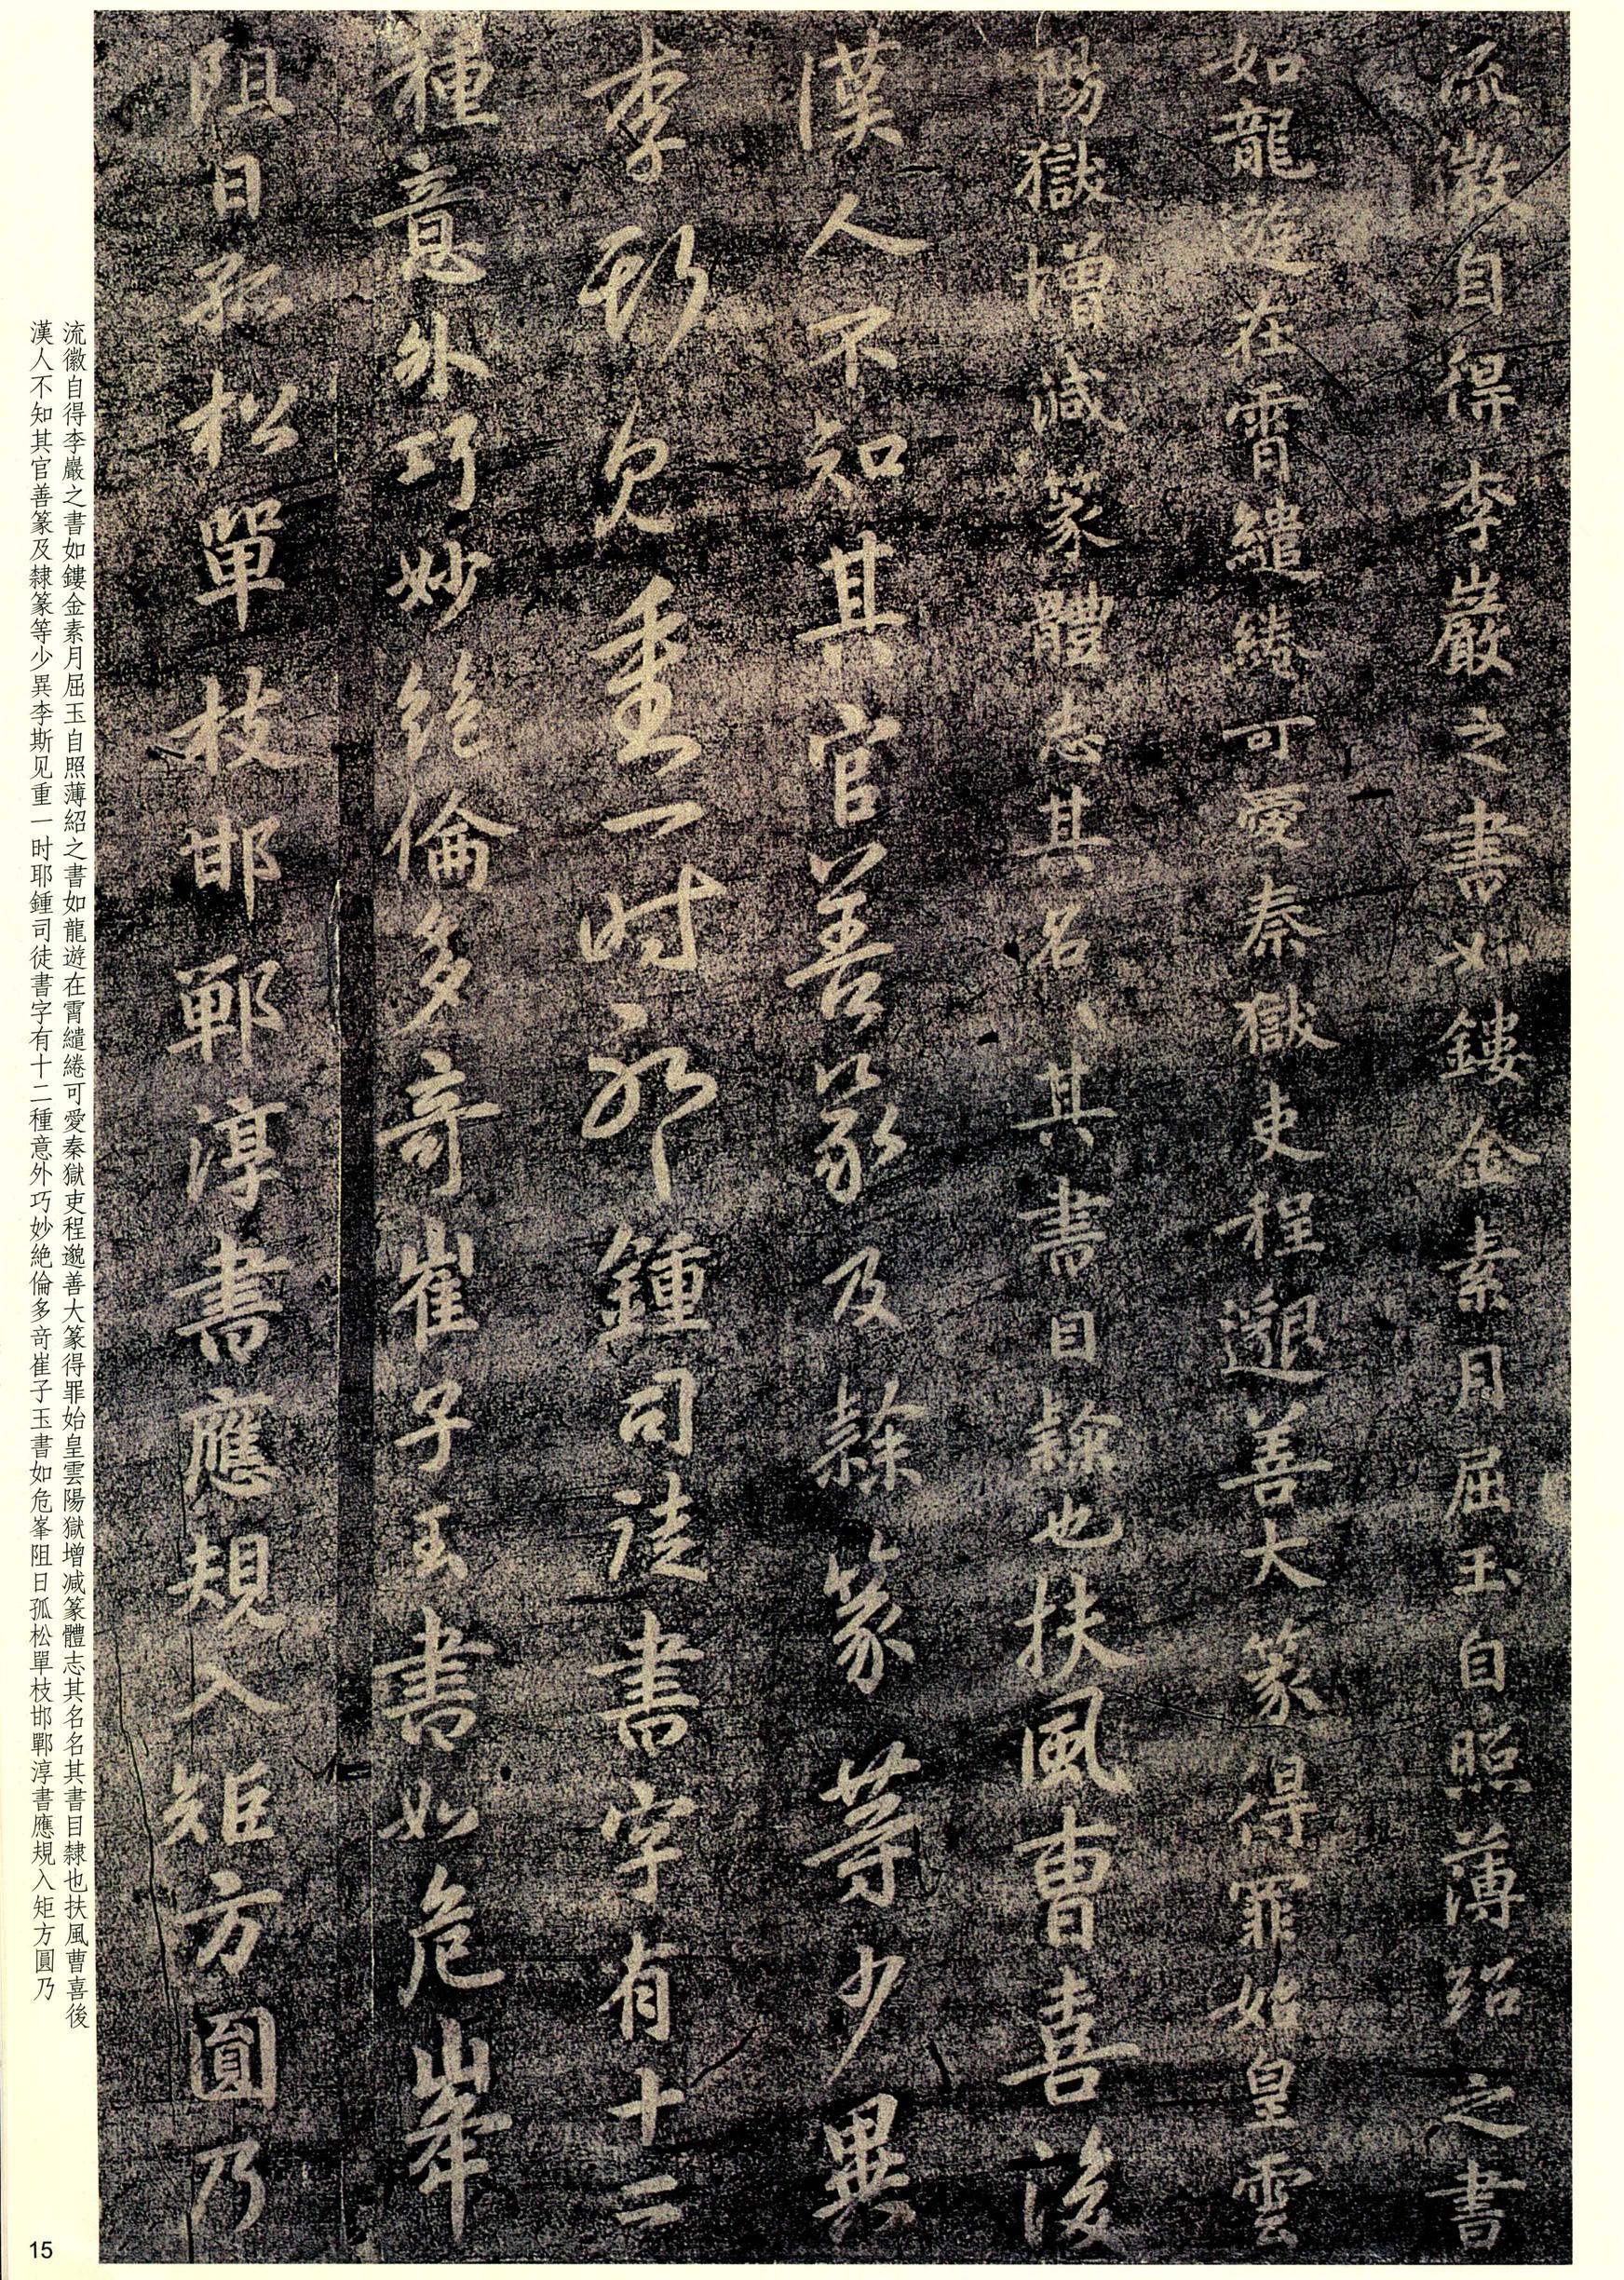 流徽自得李巖之書如鏤金素月屈玉自照薄紹之書
如龍遊在霄繾綣可愛秦獄吏程邈善大篆得罪始皇雲
陽獄增減篆體志其名〻其書目隸也扶風曹喜後
漢人不知其官善篆及隸篆等少異
李斯见重一时耶鍾司徒書字有十二
種意外巧妙絕倫多奇崔子玉書如危峯
阻日孤松單枝邯鄲淳書應規入矩方圓乃
流徽自得李巖之書如鏤金素月屈玉自照薄紹之書如龍遊在霄繾綣可愛秦獄吏程邈善大篆得罪始皇雲陽獄增减篆體志其名名其書目隸也扶風曹喜後
漢人不知其官善篆及隸篆等少異李斯见重一时耶鍾司徒書字有十二種意外巧妙絶倫多奇崔子玉書如危峯阻日孤松單枝邯鄲淳書應規入矩方圓乃
15